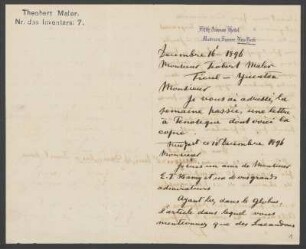 Theobert Maler.
Nr. des Inventars: 7.
Fifth Avenue Hotel
Madison Square New York
Decembre 16 1896
Monsieur Teobert Maler
Ticul – Yucatan
Monsieur
Je vous ai adressé, la
semaine passée, une lettre
à Tenosique dont voici la
copie
New York ce 10 Decembre 1896
Monsieur
Je suis un ami de Monsieur
et un de vos grands
admirateurs
Ayant lu, dans le Globus,
l'article dans lequel vous
mentionnez que des Lacandons